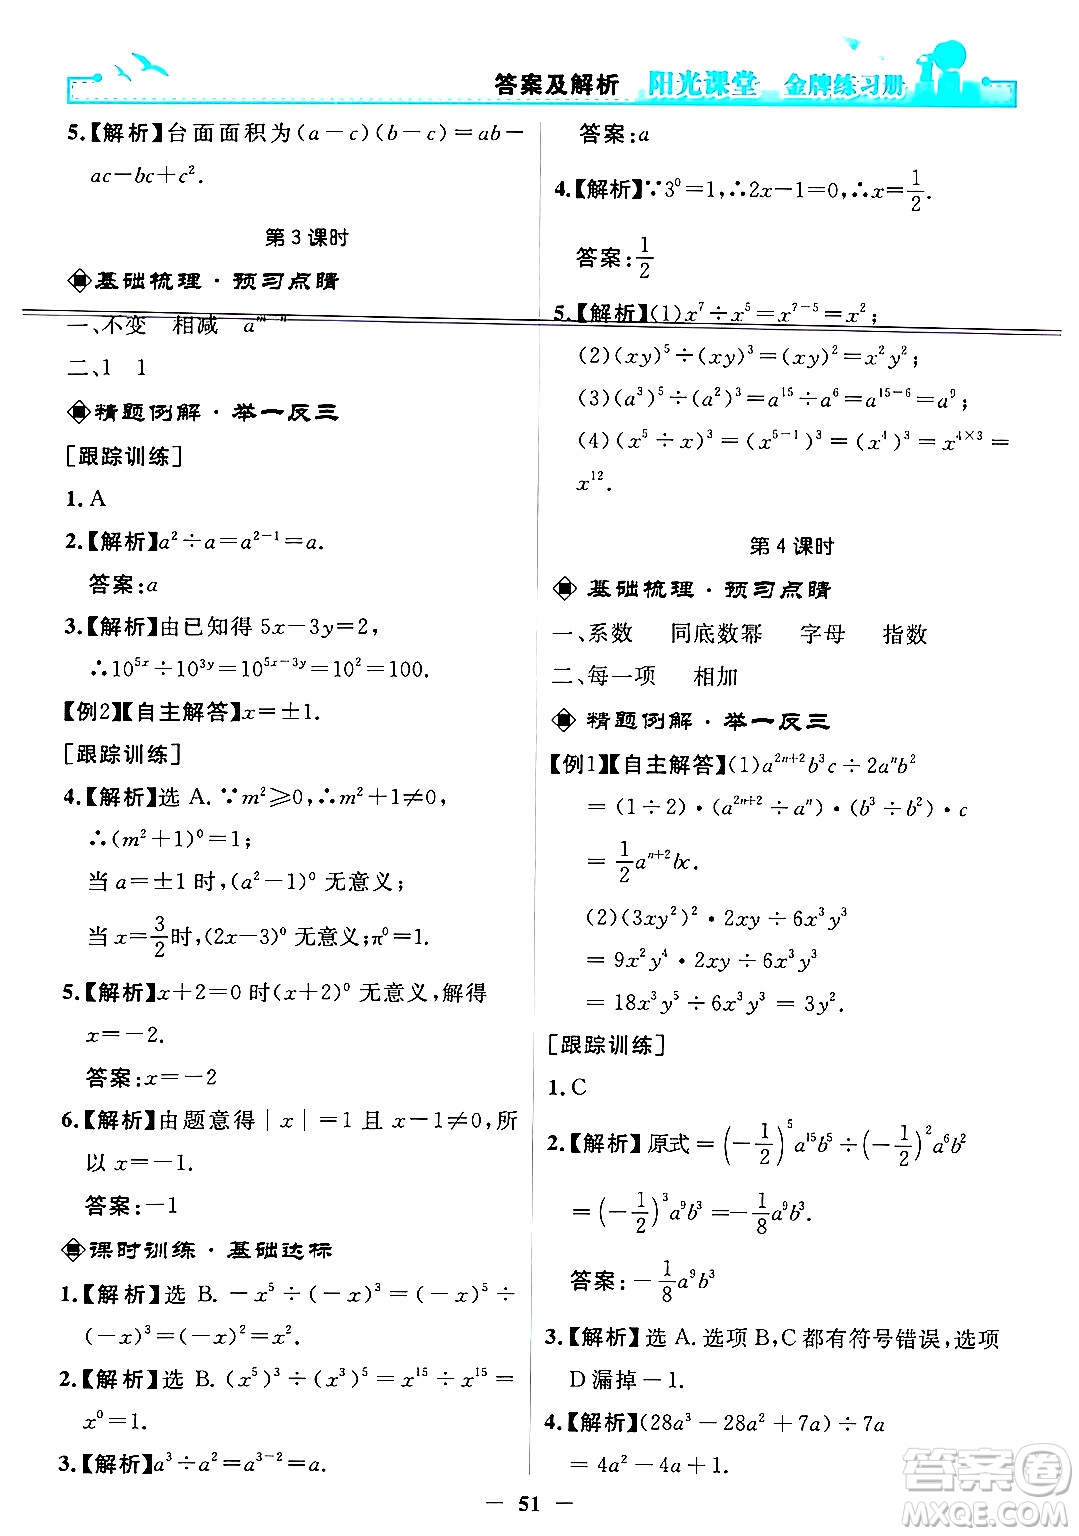 答案及解析 阳光课堂 金牌练习册
5.【解析】台面面积为(a－c)(b－c)＝ab－
ac－bc＋c².
第3课时
基础梳理·预习点睛
一、不变 相减 aᵐ⁻ⁿ
二、1 1
精题例解·举一反三
[跟踪训练]
1. A
2.【解析】a²÷a＝a²⁻¹＝a.
答案:a
3.【解析】由已知得 5x－3y＝2，
∴10⁵ˣ÷10³ʸ＝10⁵ˣ⁻³ʸ＝10²＝100.
【例2】【自主解答】x＝±1.
[跟踪训练]
4.【解析】选 A.∵m²⩾0,∴m²＋1≠0,
∴(m²＋1)⁰＝1;
当 a＝±1 时,(a²－1)⁰ 无意义;
当 x＝3/2时,(2x－3)⁰ 无意义;π⁰＝1.
5.【解析】x＋2＝0 时(x＋2)⁰ 无意义,解得
x＝－2.
答案:x＝－2
6.【解析】由题意得|x|＝1 且 x－1≠0,所
以 x＝－1.
答案:－1
课时训练·基础达标
1.【解析】选 B. －x⁵÷(－x)³＝(－x)⁵÷
(－x)³＝(－x)²＝x².
2.【解析】选 B. (x⁵)³÷(x³)⁵＝x¹⁵÷x¹⁵＝
x⁰＝1.
3.【解析】a³÷a²＝a³⁻²＝a.
答案:a
4.【解析】∵3⁰＝1,∴2x－1＝0,∴x＝1/2.
答案:1/2
5.【解析】(1)x⁷÷x⁵＝x⁷⁻⁵＝x²;
(2)(xy)⁵÷(xy)³＝(xy)²＝x²y²;
(3)(a³)⁵÷(a²)³＝a¹⁵÷a⁶＝a¹⁵⁻⁶＝a⁹;
(4)(x⁵÷x)³＝(x⁵⁻¹)³＝(x⁴)³＝x⁴ˣ³＝
x¹².
第4课时
基础梳理·预习点睛
一、系数 同底数幂 字母 指数
二、每一项 相加
精题例解·举一反三
【例1】【自主解答】(1)a²ⁿ⁺²b³c÷2aⁿb²
＝(1÷2)·(a²ⁿ⁺²÷aⁿ)·(b³÷b²)·c
＝1/2aⁿ⁺²bc.
(2)(3xy²)²·2xy÷6x³y³
＝9x²y⁴·2xy÷6x³y³
＝18x³y⁵÷6x³y³＝3y².
[跟踪训练]
1. C
2.【解析】原式＝(－1/2)⁵a¹⁵b⁵÷(－1/2)²a⁶b²
＝(－1/2)³a⁹b³＝－1/8a⁹b³.
答案:－1/8a⁹b³
3.【解析】选 A. 选项 B,C 都有符号错误,选项
D 漏掉－1.
4.【解析】(28a³－28a²＋7a)÷7a
＝4a²－4a＋1.
— 51 —
答案圈
MXQE.COM